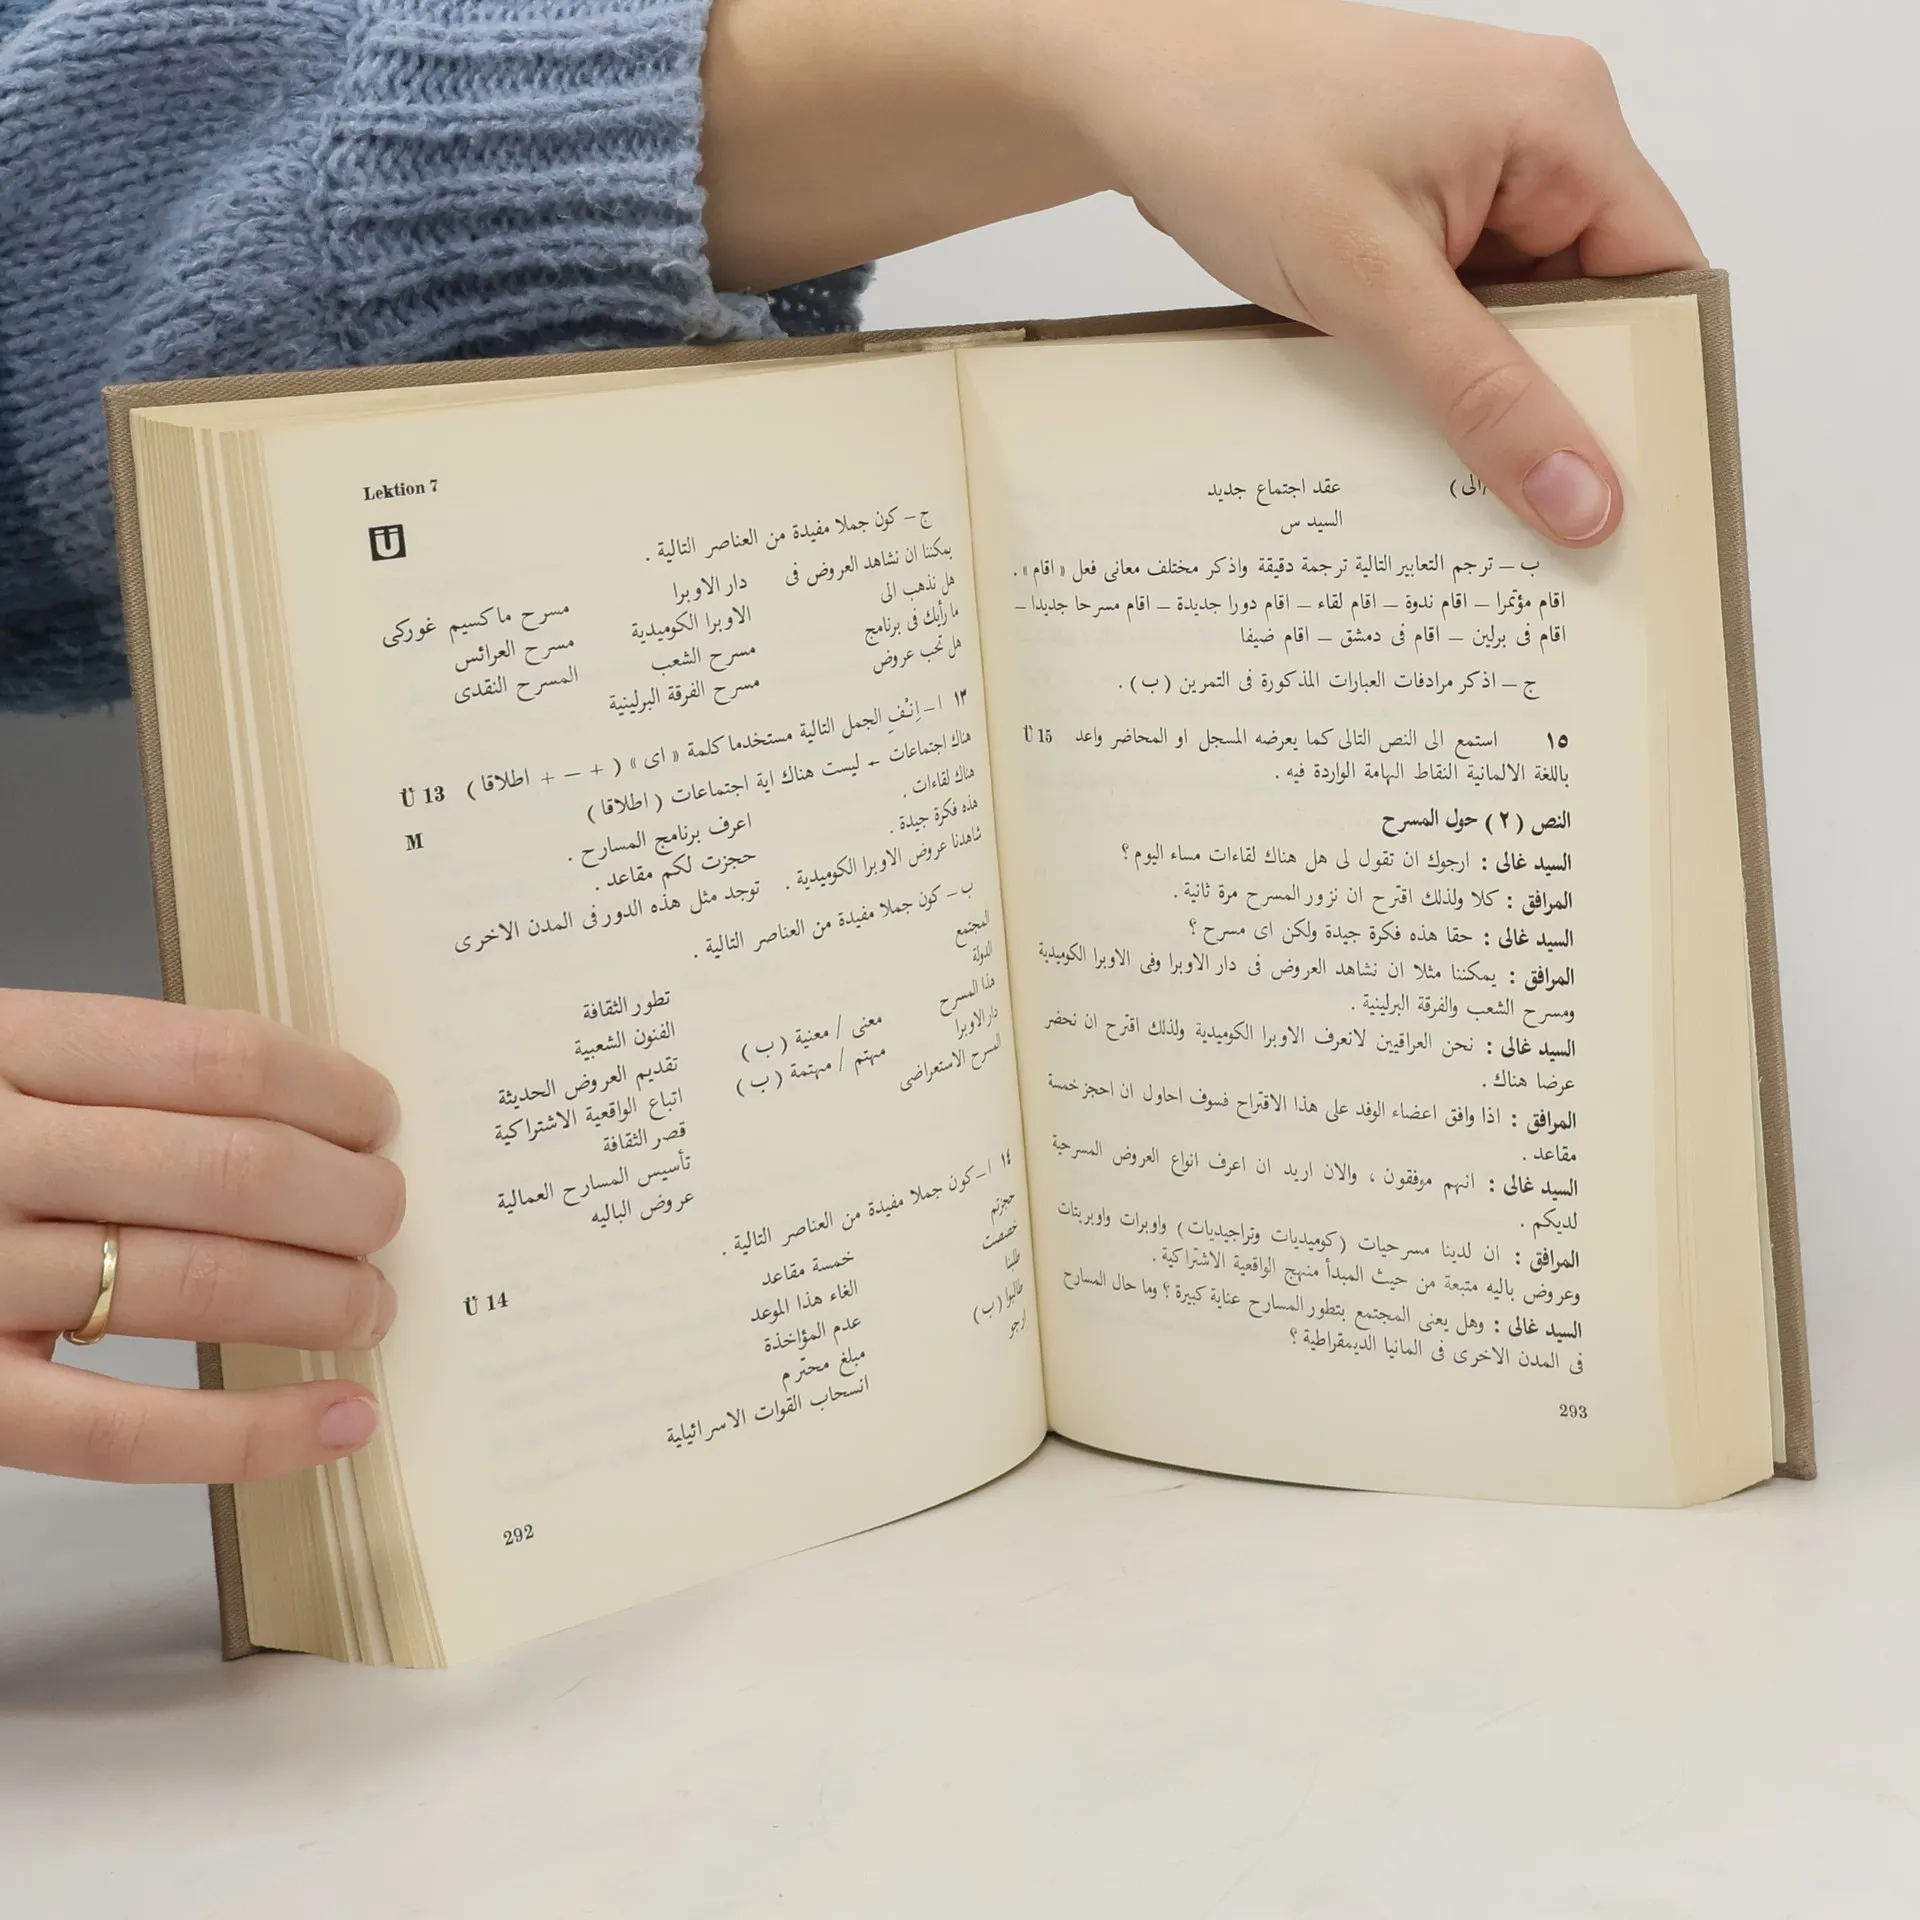 Lektion 7
Ü
ج – كون جملا مفيدة من العناصر التالية .
يمكننا ان نشاهد العروض فى دار الاوبرا مسرح ماكسيم غوركى
هل نذهب الى الاوبرا الكوميدية مسرح العرائس
ما رأيك فى برنامج مسرح الشعب المسرح النقدى
هل تحب عروض مسرح الفرقة البرلينية
١٣ ا – اِنْفِ الجمل التالية مستخدما كلمة « اى » ( + – + اطلاقا ) Ü 13
هناك اجتماعات ← ليست هناك اية اجتماعات ( اطلاقا ) M
هناك لقاءات . اعرف برنامج المسارح .
هذه فكرة جيدة . حجزت لكم مقاعد .
شاهدنا عروض الاوبرا الكوميدية . توجد مثل هذه الدور فى المدن الاخرى
ب – كون جملا مفيدة من العناصر التالية .
المجتمع تطور الثقافة
الدولة الفنون الشعبية
هذا المسرح معنى / معنية ( ب ) تقديم العروض الحديثة
دار الاوبرا مهتم / مهتمة ( ب ) اتباع الواقعية الاشتراكية
المسرح الاستعراضى قصر الثقافة
تأسيس المسارح العمالية
عروض الباليه
١٤ ا – كون جملا مفيدة من العناصر التالية . Ü 14
حجزتم خمسة مقاعد
خصصت الغاء هذا الموعد
طلبنا عدم المؤاخذة
طالبوا ( ب ) مبلغ محترم
ارجو انسحاب القوات الاسرائيلية
292
/الى ) عقد اجتماع جديد
السيد س
ب – ترجم التعابير التالية ترجمة دقيقة واذكر مختلف معانى فعل « اقام » .
اقام مؤتمرا – اقام ندوة – اقام لقاء – اقام دورا جديدة – اقام مسرحا جديدا –
اقام فى برلين – اقام فى دمشق – اقام ضيفا
ج – اذكر مرادفات العبارات المذكورة فى التمرين ( ب ) .
١٥ استمع الى النص التالى كما يعرضه المسجل او المحاضر واعد Ü 15
باللغة الالمانية النقاط الهامة الواردة فيه .
النص ( ٢ ) حول المسرح
السيد غالى : ارجوك ان تقول لى هل هناك لقاءات مساء اليوم ؟
المرافق : كلا ولذلك اقترح ان نزور المسرح مرة ثانية .
السيد غالى : حقا هذه فكرة جيدة ولكن اى مسرح ؟
المرافق : يمكننا مثلا ان نشاهد العروض فى دار الاوبرا وفى الاوبرا الكوميدية
ومسرح الشعب والفرقة البرلينية .
السيد غالى : نحن العراقيين لانعرف الاوبرا الكوميدية ولذلك اقترح ان نحضر
عرضا هناك .
المرافق : اذا وافق اعضاء الوفد على هذا الاقتراح فسوف احاول ان احجز خمسة
مقاعد .
السيد غالى : انهم موفقون ، والان اريد ان اعرف انواع العروض المسرحية
لديكم .
المرافق : ان لدينا مسرحيات (كوميديات وتراجيديات) واوبرات واوبريتات
وعروض باليه متبعة من حيث المبدأ منهج الواقعية الاشتراكية .
السيد غالى : وهل يعنى المجتمع بتطور المسارح عناية كبيرة ؟ وما حال المسارح
فى المدن الاخرى فى المانيا الديمقراطية ؟
293